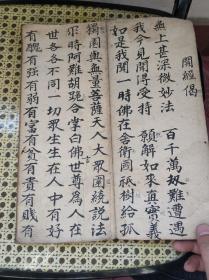 開經偈
無上甚深微妙法 百千萬刼難遭遇
我今見聞得受持 願解如來真實義
如是我聞一時佛在舍衛國祇樹給孤
獨園與無量菩薩天人大衆圍繞説法
尔時阿難胡跪合掌白佛世尊為人在
世各各不同一切衆生生在人中有好
有醜有強有弱有富有貧有貴有賤有